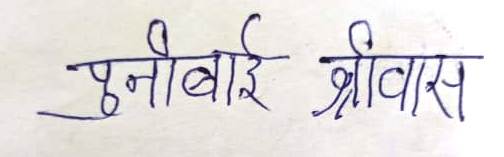 पुनीबाई श्रीवास